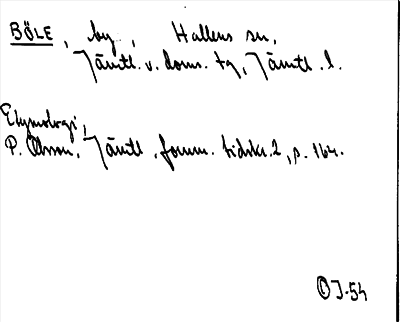 BÖLE, by, Hallens sn,
Jämtl. v. doms. tg, Jämtl. l.
Etymologi,
P. Olsson, Jämtl. fornm. tidskr. 2, p. 164.
OJ-54